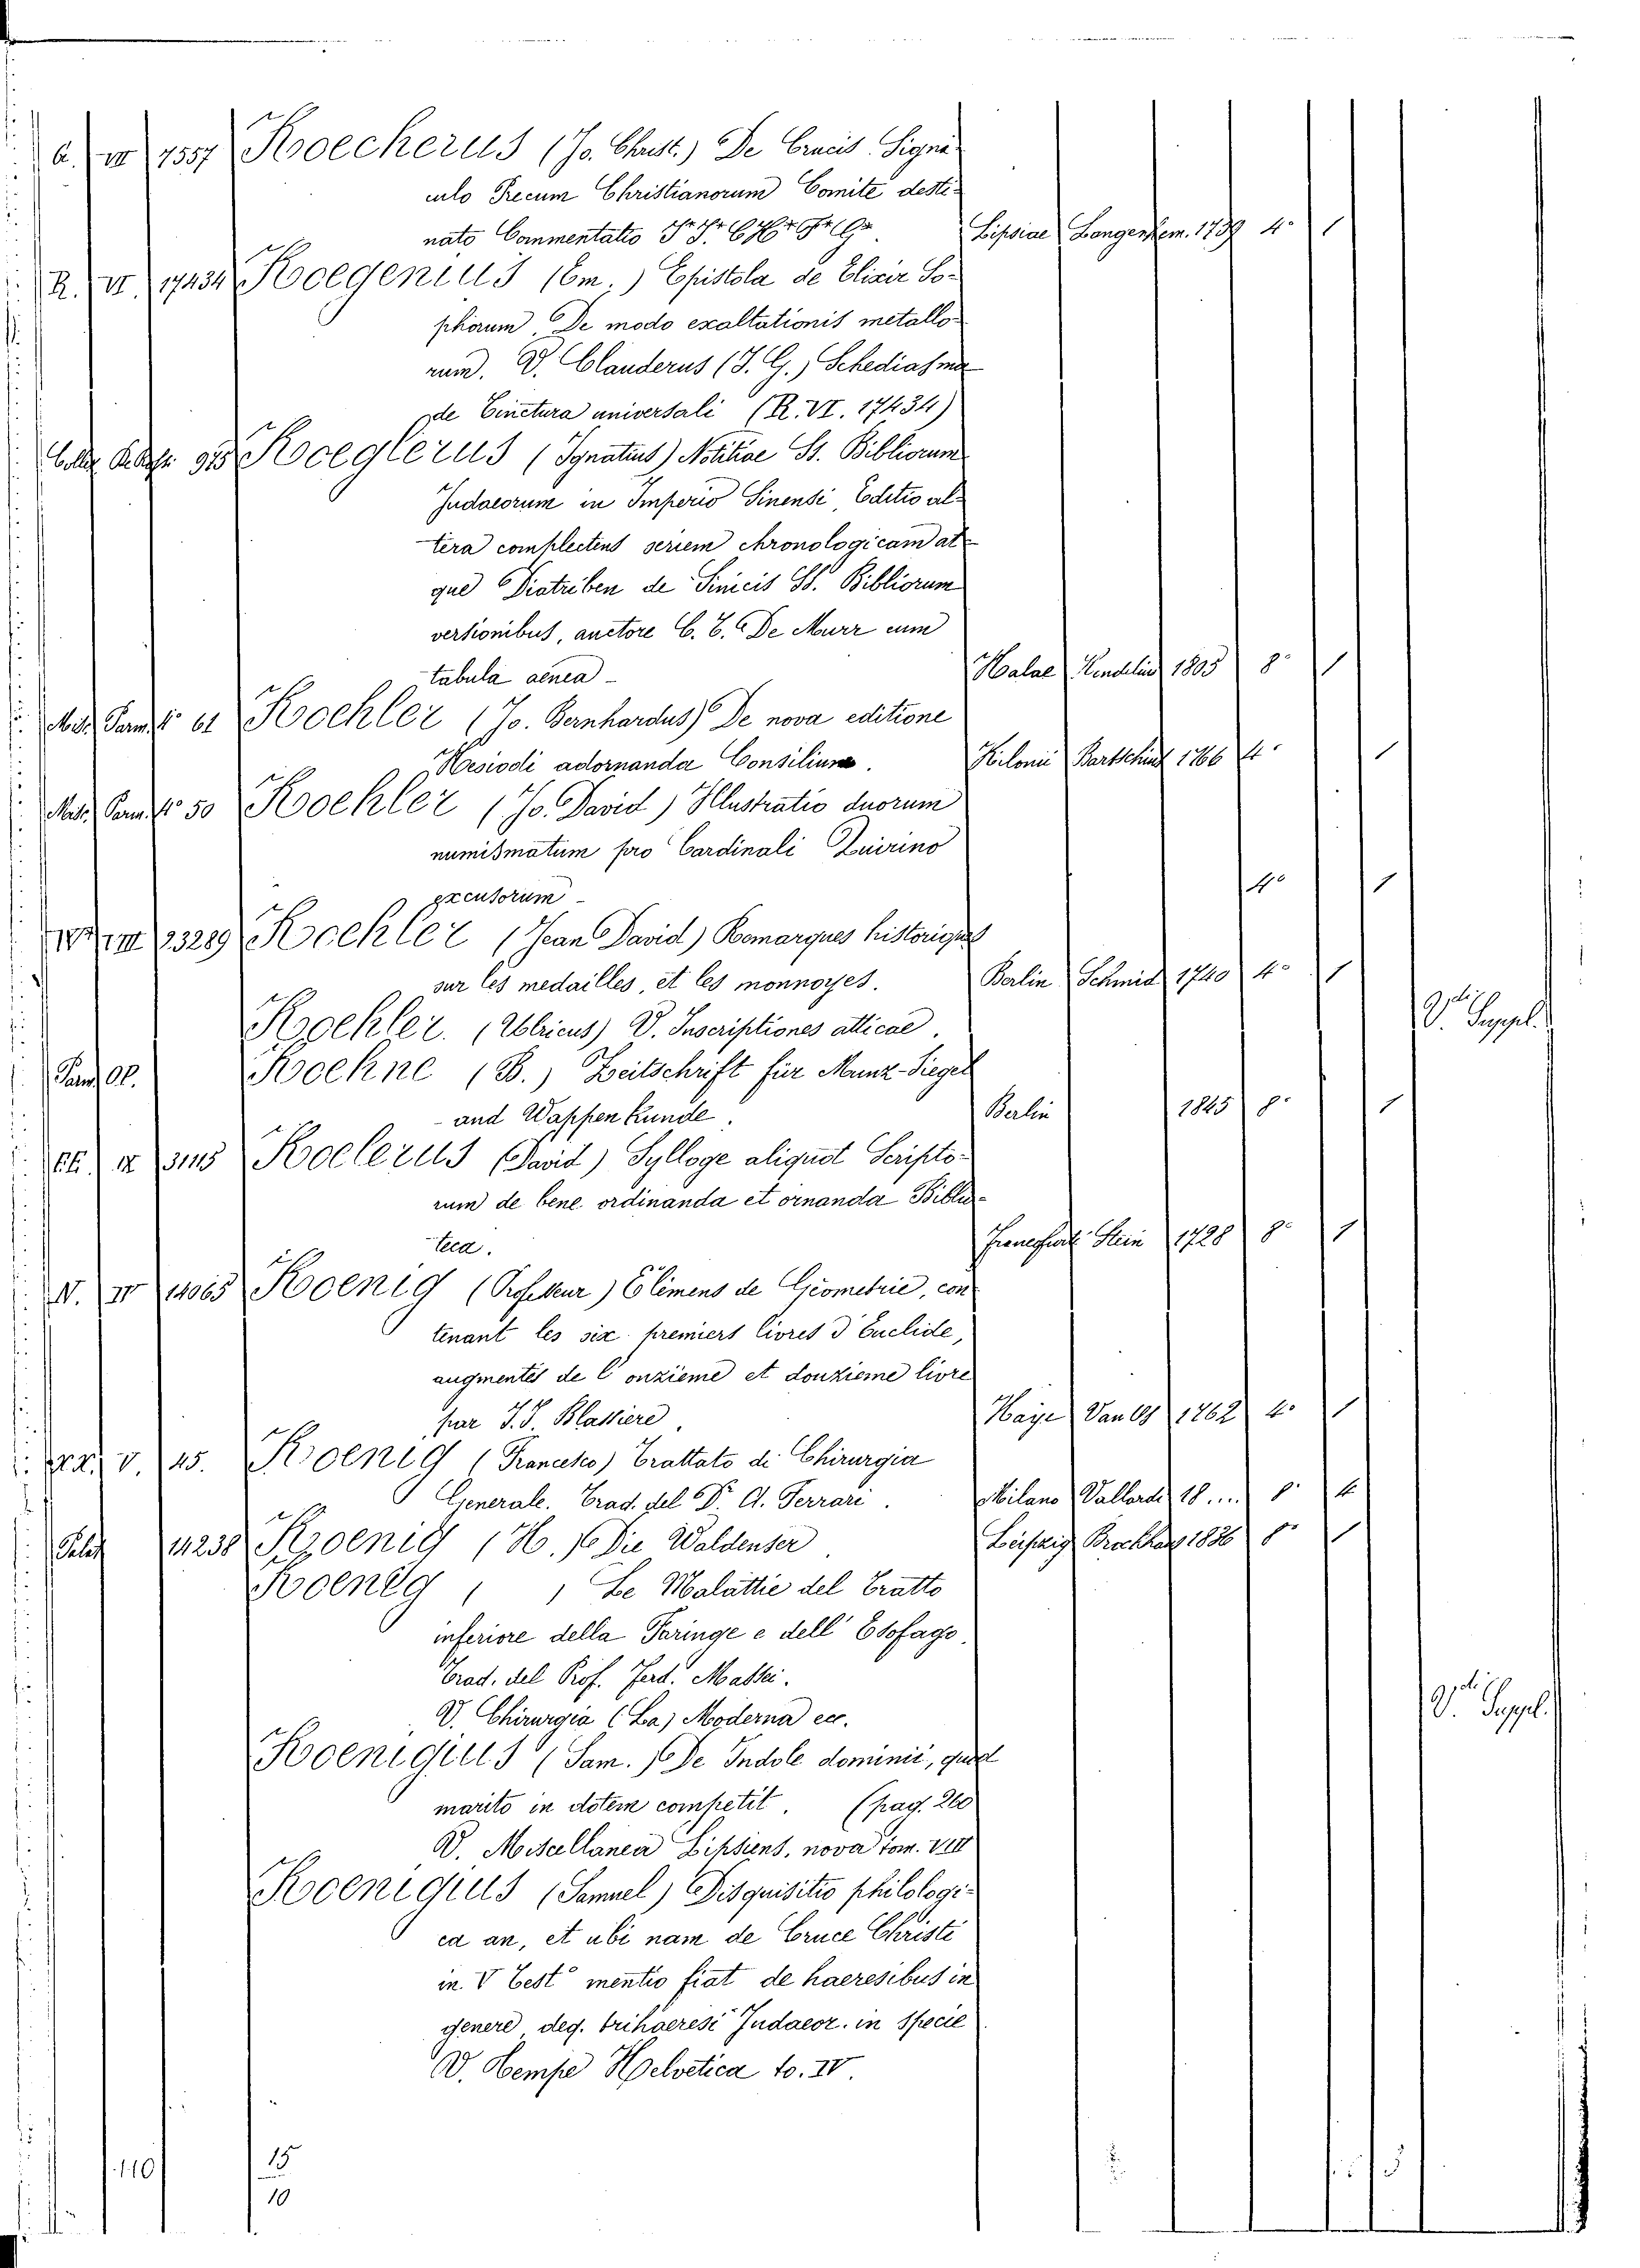 A. VII 7557 Koeckerus (Jo. Christ.) De Crucis Signa-
culo Precum Christianorum Comite desti-
nato Commentatio Lipsiae Langenhem. 1739 4° 1
R. VI. 17434 Koegenius (Em.) Epistola de Elixir So-
phorum, De modo exaltationis metallo-
rum. V. Clauderus (J. G.) Schediasma
de Tinctura universali (R. VI. 17434)
975 Koeglerus (Ignatius) Notitiae St. Bibliorum
Judaeorum in Imperio Sinensi, Editio al-
tera complectens seriem chronologicam at-
que Diatriben de Sinicis SS. Bibliorum
versionibus, auctore C. T. De Murr cum
tabula aenea - Halae Hendelius 1805 8° 1
61 Koehler (Jo. Bernhardus) De nova editione
Hesiodi adornanda Consilium. Kilonii Bartschius 1766 4° 1
50 Koehler (Jo. David) Illustratio duorum
numismatum pro Cardinali Quirino
excusorum - 4° 1
III 23289 Koehler (Jean David) Remarques historiques
sur les medailles, et les monnoyes. Berlin Schmid 1740 4° 1
Koehler. (Ulricus) V. Inscriptiones atticae. V. Suppl.
Koehne (B.) Zeitschrift für Munz-Siegel
und Wappen kunde. Berlin 1845 8° 1
EE. IX 31115 Koelerus (David) Sylloge aliquot Scripto-
rum de bene ordinanda et ornanda Biblio-
teca. Francofurt. Stein 1728 8° 1
N. IV 14065 Koenig (Professeur) Elémens de Géometrie, con-
tenant les six premiers livres d'Euclide,
augmentés de l'onzieme et douzieme livre
par J. J. Blassiere. Haye Van Os 1762 4° 1
V. 45. Koenig (Francesco) Trattato di Chirurgia
Generale. Trad. del Dr. A. Ferrari. Milano Vallardi 18.... 8° 4
14238 Koenig (H.) Die Waldenser. Leipzig Brockhaus 1836 8° 1
Koenig ( ) Le Malattie del Tratto
inferiore della Faringe e dell'Esofago.
Trad. del Prof. Ferd. Massei.
V. Chirurgia (La) Moderna ecc. V. Suppl.
Koenigius (Sam.) De Indole dominii, quod
marito in dotem competit. (pag. 260
V. Miscellanea Lipsiens. nova tom. VIII
Koenigius (Samuel) Disquisitio philologi-
ca an, et ubi nam de Cruce Christi
in V Test° mentio fiat de haeresibus in
genere, deq. trihaeresi Judaeor. in specie
V. Tempe Helvetica to. IV.
110
15
10